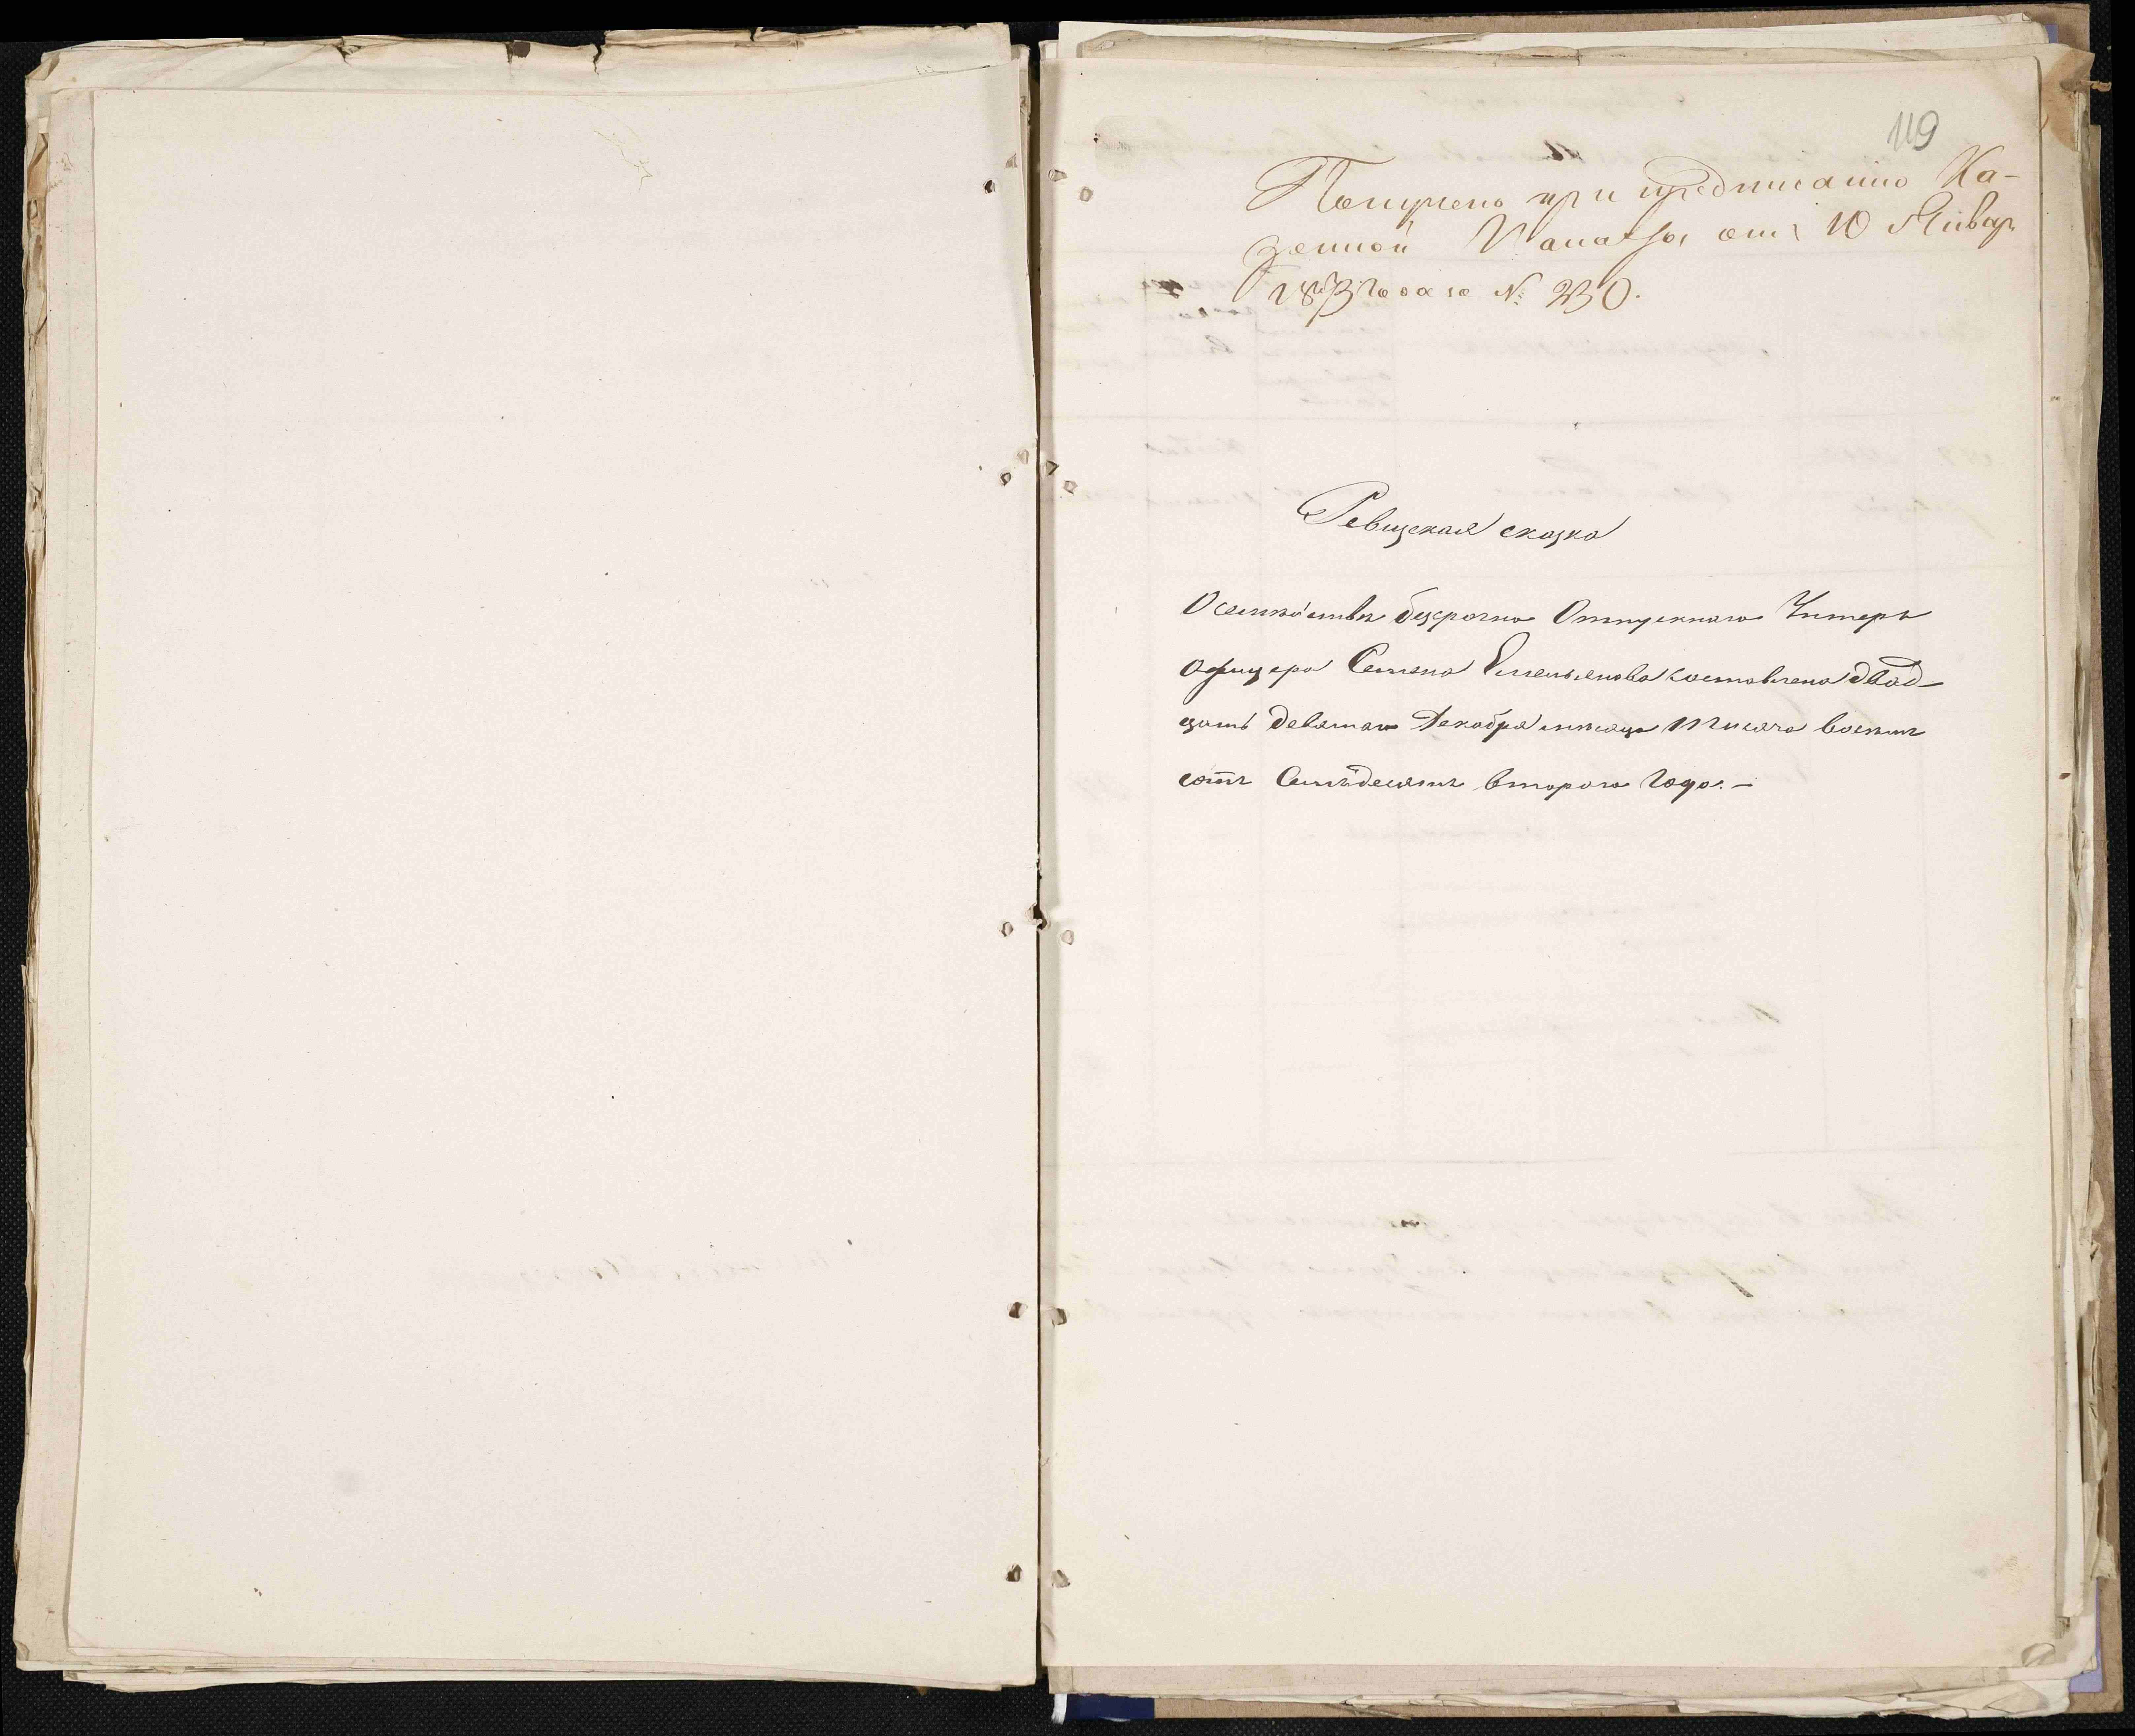 119
Получено при предписанiю Ка-
зенной Палаты отъ 10 Январ
1873 года за № 230.
Ревизская сказка
О семѣйствѣ безсрочно Отпускнаго Унтеръ
офицера Семена Емельянова составлена двад-
цать девятаго Декабря мѣсяца Тысяча восемь
сотъ Семьдесятъ втораго года.-